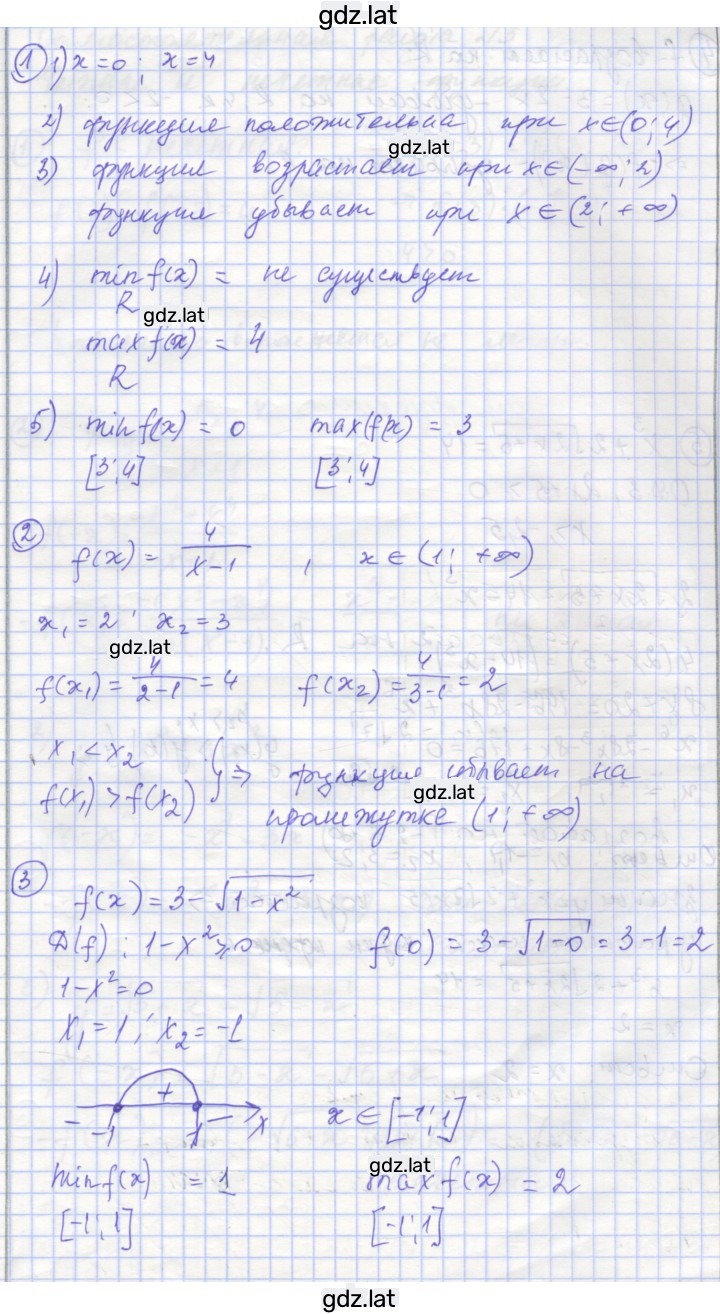 gdz.lat
① 1) x = 0 ; x = 4
2) функция положительна при x∈(0; 4)
gdz.lat
3) функция возрастает при x∈(-∞; 2)
функция убывает при x∈(2; +∞)
4) min f(x) = не существует
R
gdz.lat
max f(x) = 4
R
5) min f(x) = 0 max(f(x) = 3
[3; 4] [3; 4]
② f(x) = 4/(x-1) , x∈(1; +∞)
x₁ = 2 ; x₂ = 3
gdz.lat
f(x₁) = 4/(2-1) = 4 f(x₂) = 4/(3-1) = 2
x₁ < x₂
f(x₁) > f(x₂) } ⇒ функция убывает на
gdz.lat
промежутке (1; +∞)
③ f(x) = 3 - √(1-x²)
D(f) : 1-x² ⩾ 0 f(0) = 3 - √(1-0) = 3-1 = 2
1-x² = 0
x₁ = 1 ; x₂ = -1
- + -
-1 1 x x∈[-1; 1]
gdz.lat
min f(x) = 1 max f(x) = 2
[-1; 1] [-1; 1]
gdz.lat